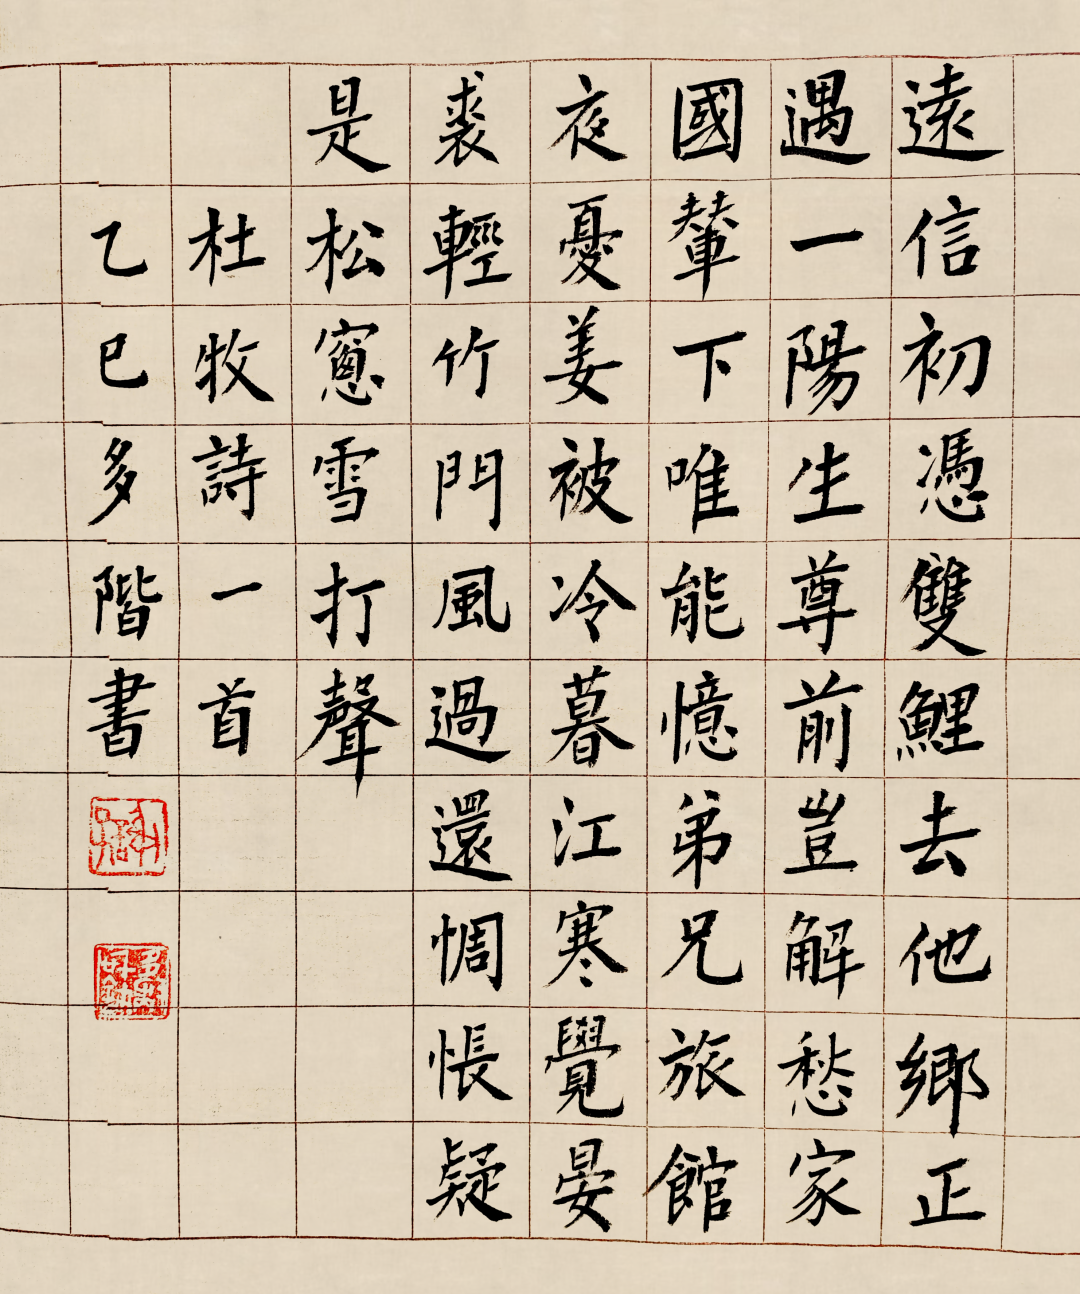 遠信初憑雙鯉去他鄉正
遇一陽生尊前豈解愁家
國輦下唯能憶弟兄旅館
夜憂姜被冷暮江寒覺晏
裘輕竹門風過還惆悵疑
是松窗雪打聲
杜牧詩一首
乙巳多階書